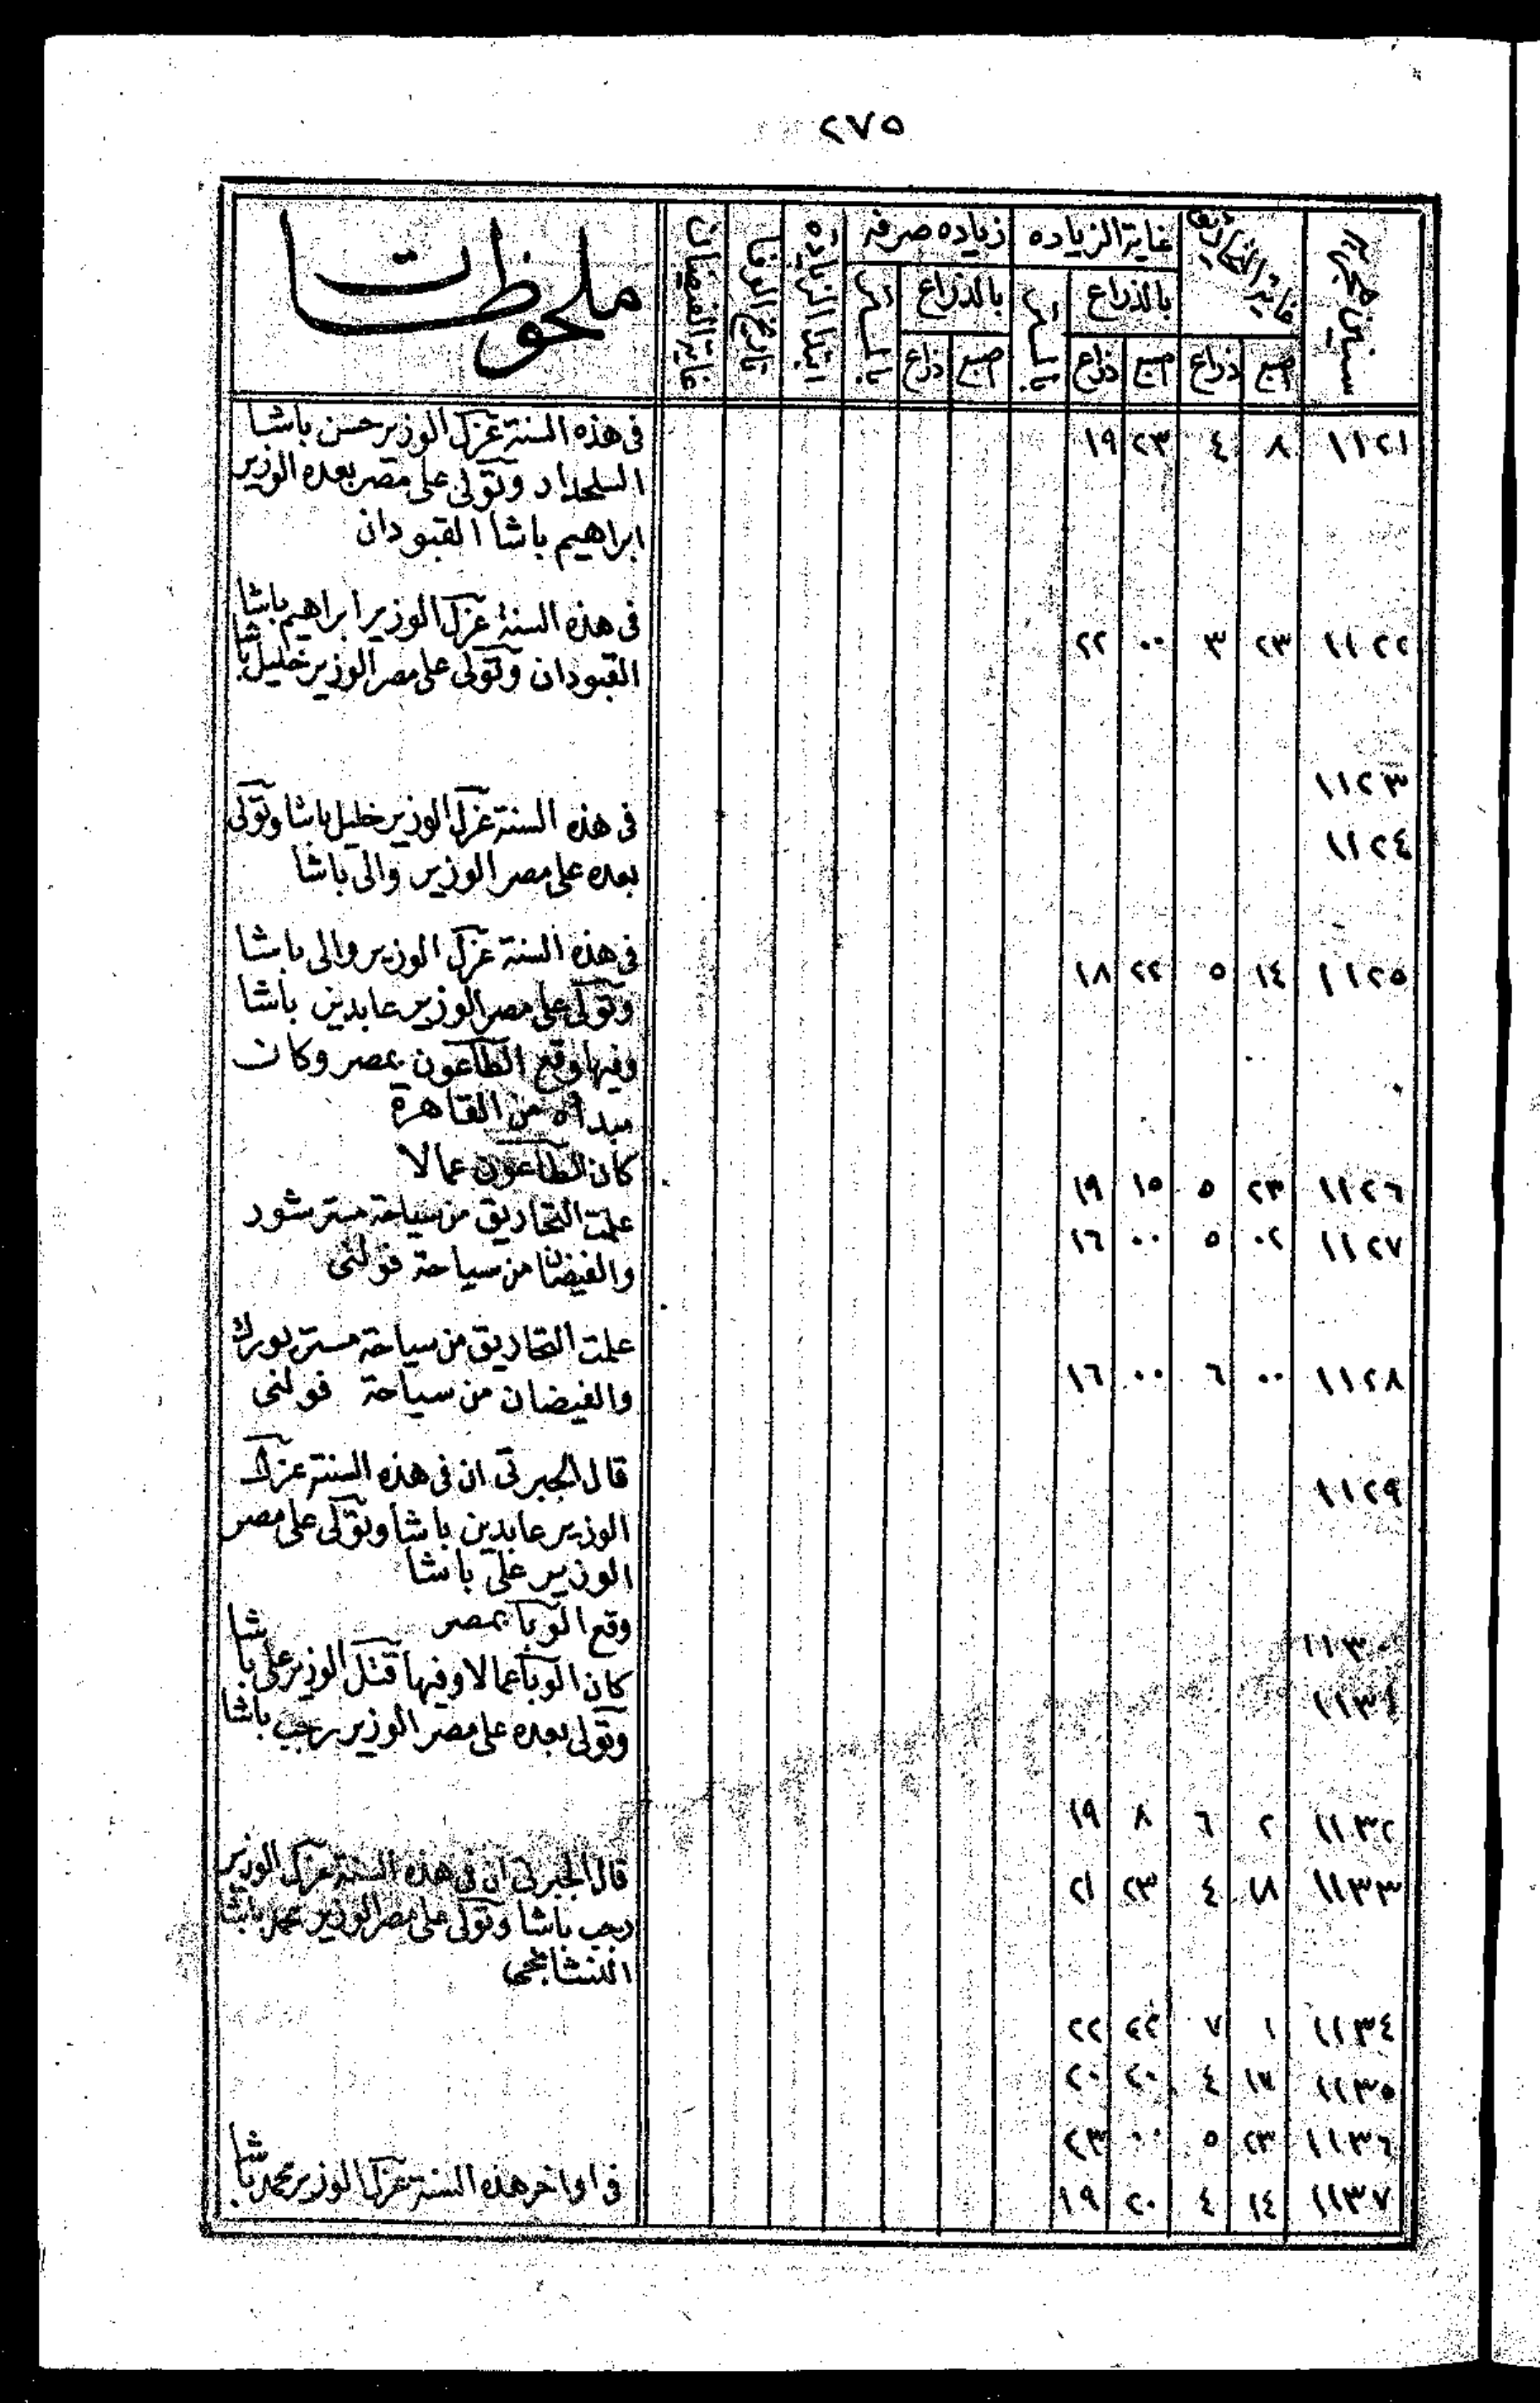 ٢٧٥
سنين هجرية | غاية التحاريق | غاية الزياده | زياده صرفه | ابتدا الزيادة | تاريخ الوفا | غاية الفيضان | ملحوظات
بالذراع | بالمتر | بالذراع | بالمتر
اصبع | ذراع | اصبع | ذراع | اصبع | ذراع
١١٢١ | ٨ | ٤ | ٢٣ | ١٩ | فى هذه السنة عزل الوزير حسن باشا
السلحدار وتولى على مصر بعده الوزير
ابراهيم باشا القبودان
١١٢٢ | ٢٣ | ٣ | ٠٠ | ٢٢ | فى هذه السنة عزل الوزير ابراهيم باشا
القبودان وتولى على مصر الوزير خليل باشا
١١٢٣
١١٢٤ | فى هذه السنة عزل الوزير خليل باشا وتولى
بعده على مصر الوزير والى باشا
١١٢٥ | ١٤ | ٥ | ٢٢ | ١٨ | فى هذه السنة عزل الوزير والى باشا
وتولى على مصر الوزير عابدين باشا
وفيها وقع الطاعون بمصر وكان
مبدأه من القاهرة
١١٢٦ | ٢٣ | ٥ | ١٥ | ١٩ | كان الطاعون عمالا
١١٢٧ | ٠٢ | ٥ | ٠٠ | ١٦ | علمت التحاريق من سياحة مستر شور
والفيضان من سياحة فولنى
١١٢٨ | ٠٠ | ٦ | ٠٠ | ١٦ | علمت التحاريق من سياحة مستر بورك
والفيضان من سياحة فولنى
١١٢٩ | قال الجبرتى ان فى هذه السنة عزل
الوزير عابدين باشا وتولى على مصر
الوزير على باشا
١١٣٠ | وقع الوبا بمصر
١١٣١ | كان الوبا عمالا وفيها قتل الوزير على باشا
وتولى بعده على مصر الوزير رجب باشا
١١٣٢ | ٢ | ٦ | ٨ | ١٩
١١٣٣ | ١٨ | ٤ | ٢٣ | ٢١ | قال الجبرتى ان فى هذه السنة عزل الوزير
رجب باشا وتولى على مصر الوزير محمد باشا
النشانجى
١١٣٤ | ١ | ٧ | ٢٢ | ٢٢
١١٣٥ | ١٧ | ٤ | ٢٠ | ٢٠
١١٣٦ | ٢٣ | ٥ | ٠٠ | ٢٣
١١٣٧ | ١٤ | ٤ | ٢٠ | ١٩ | فى اواخر هذه السنة عزل الوزير محمد باشا